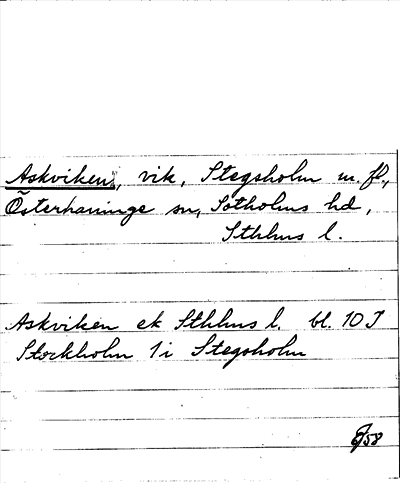 Askviken, vik, Stegsholm m. fl.,
Österhaninge sn, Sotholms hd,
Sthlms l.
Askviken ek Sthlms l. bl. 10 J
Stockholm 1 i Stegsholm